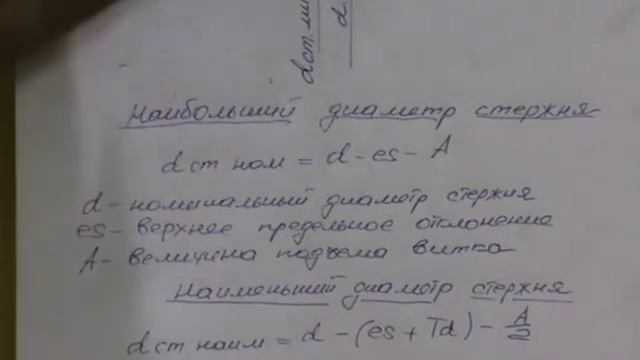 dст.ми
d.
Наибольший диаметр стержня
dст ном = d - es - A
d - номинальный диаметр стержня
es - верхнее предельное отклонение
A - величина подъема витка
Наименьший диаметр стержня
dст наим = d - (es + Td) - A/2